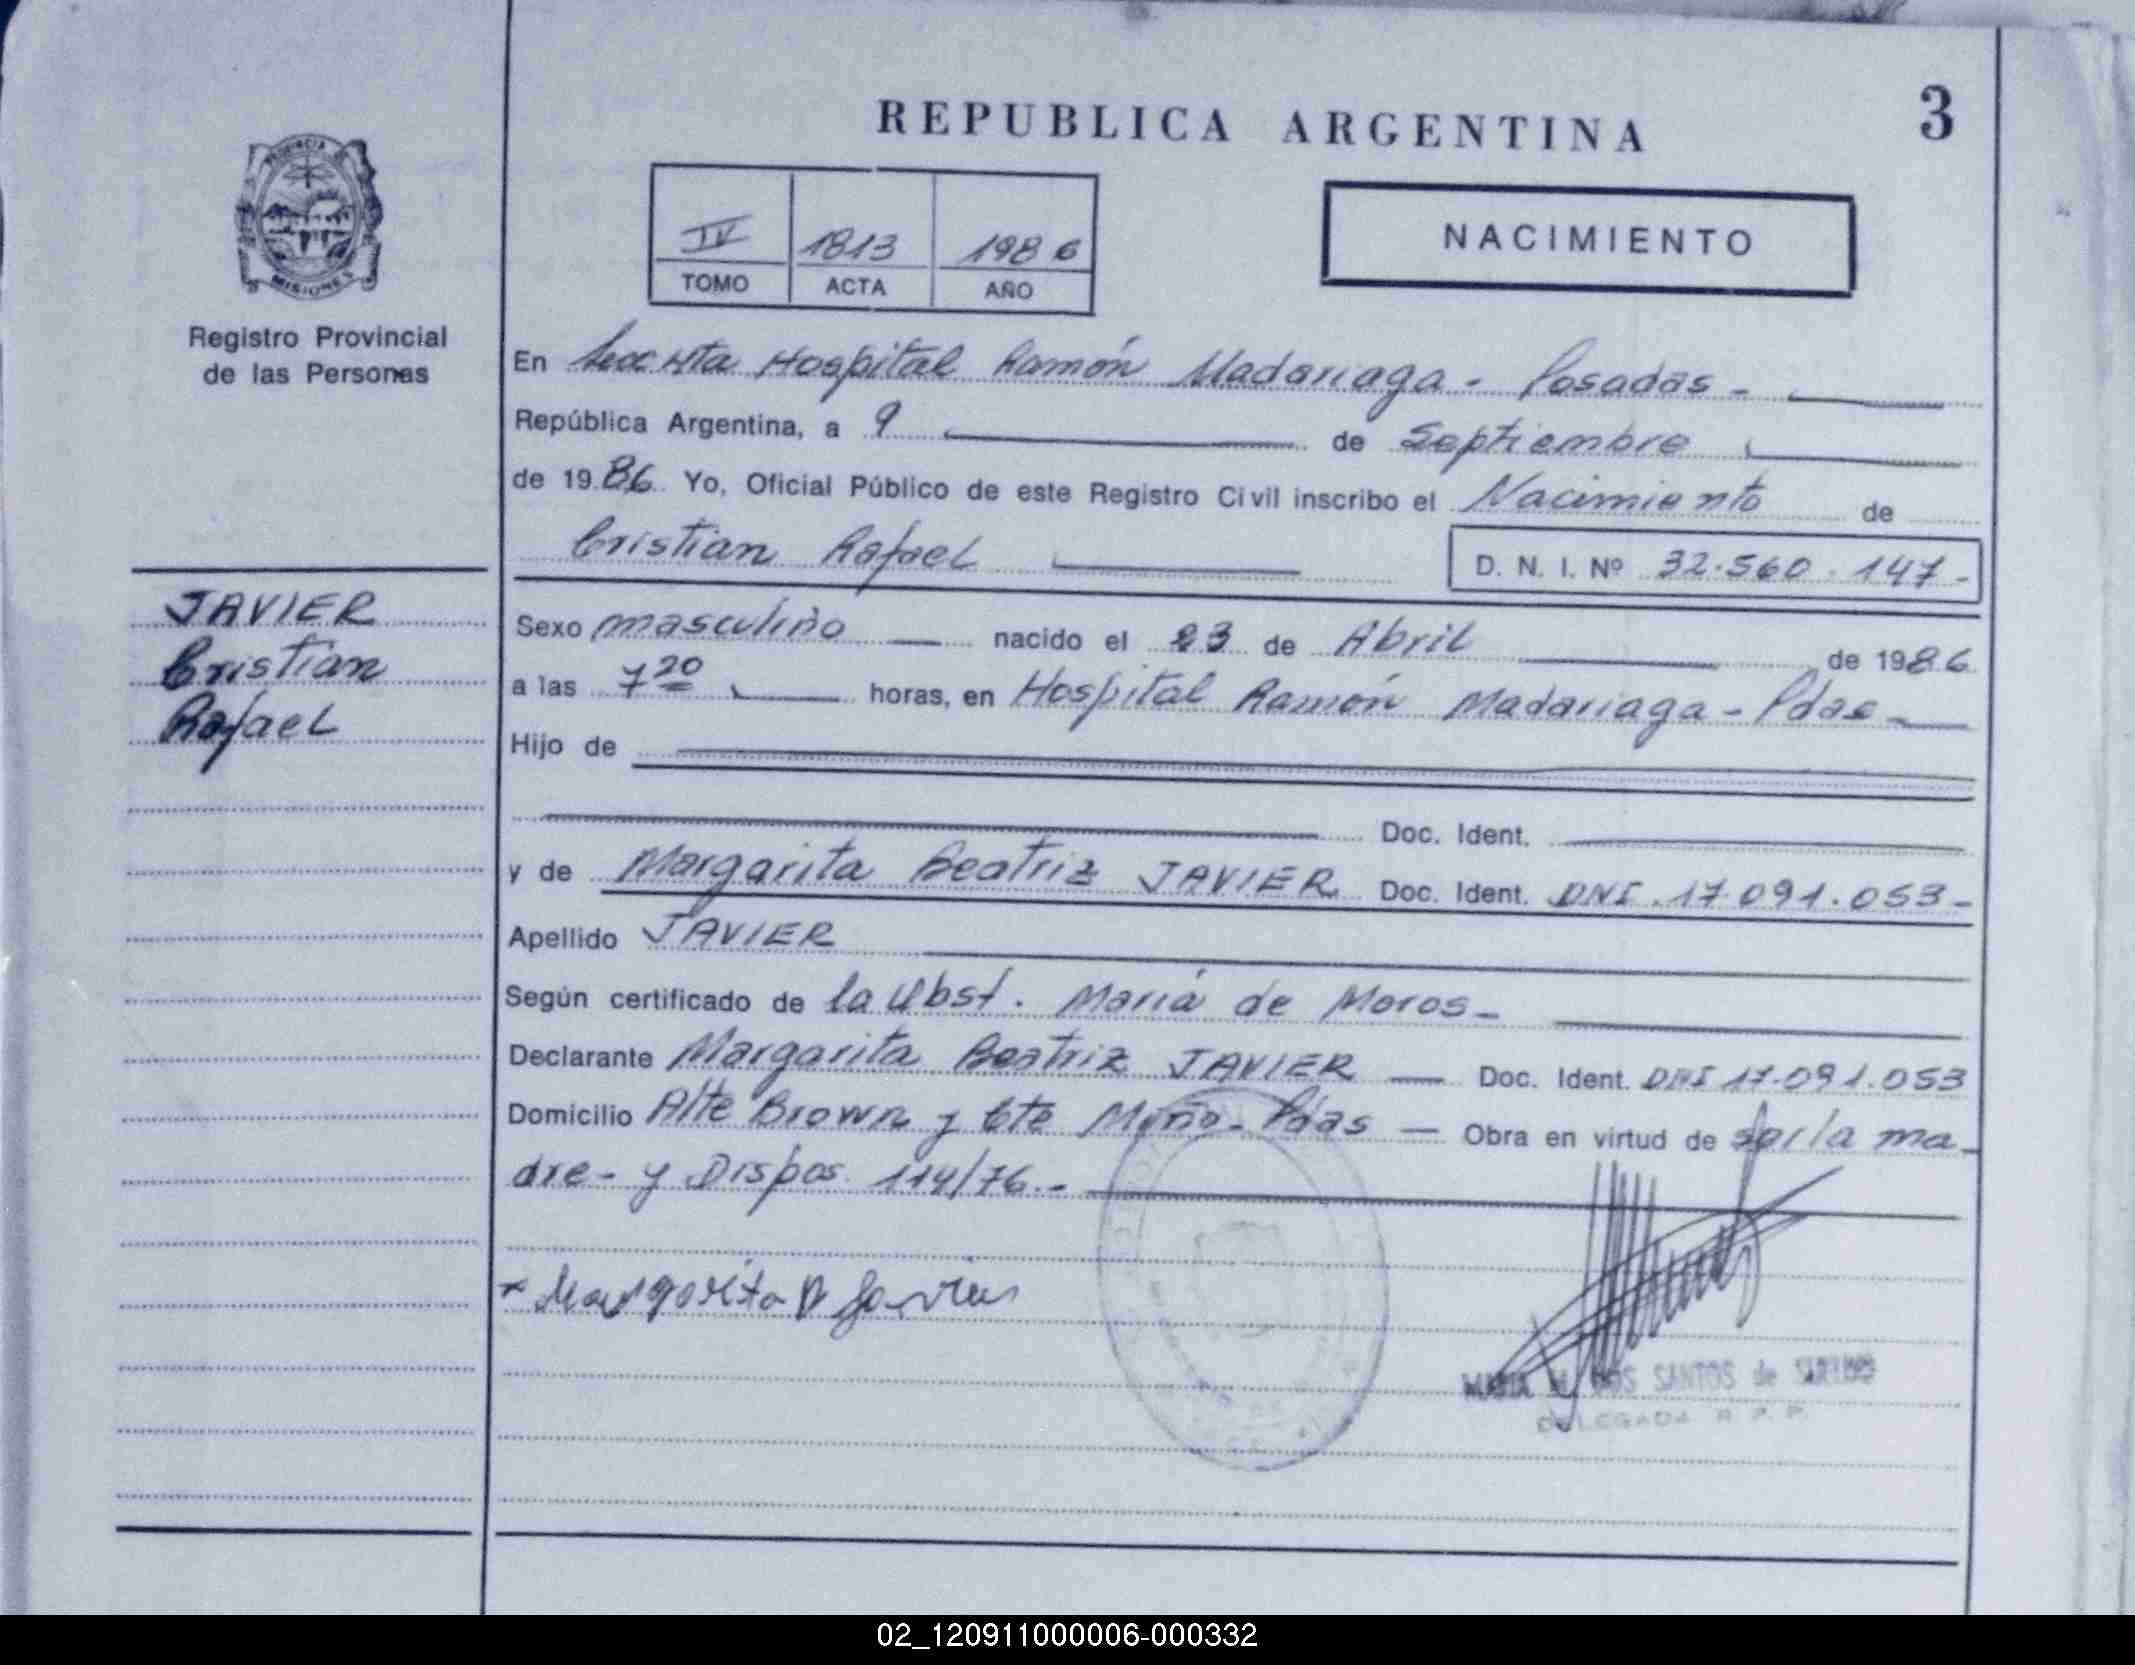 REPUBLICA ARGENTINA
3
PROVINCIA DE
MISIONES
Registro Provincial
de las Personas
IV 1813 1986
TOMO ACTA AÑO
NACIMIENTO
En Hospital Ramón Madariaga - Posadas -
República Argentina, a 9 de Septiembre
de 1986 Yo, Oficial Público de este Registro Civil inscribo el Nacimiento de
Cristian Rafael D. N. I. Nº 32.560.147-
JAVIER
Cristian
Rafael
Sexo masculino nacido el 23 de Abril de 1986
a las 7 20 horas, en Hospital Ramón Madariaga - Pdas -
Hijo de
Doc. Ident.
y de Margarita Beatriz JAVIER Doc. Ident. DNI. 17.091.053-
Apellido JAVIER
Según certificado de la Obst. María de Moros -
Declarante Margarita Beatriz JAVIER - Doc. Ident. DNI 17.091.053
Domicilio Alte Brown y Cte Miño - Pdas - Obra en virtud de ser la ma-
dre - y Dispos. 114/76.-
Margarita B Javier
MARIA M. DOS SANTOS de
DELEGADA R. P. P.
02_120911000006-000332